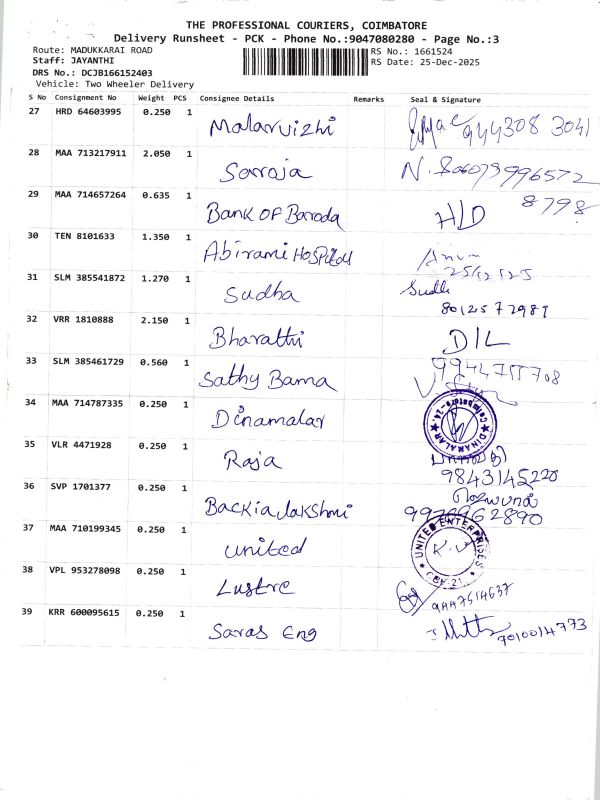 THE PROFESSIONAL COURIERS, COIMBATORE
Delivery Runsheet - PCK - Phone No.:9047080280 - Page No.:3
Route: MADUKKARAI ROAD
RS No.: 1661524
Staff: JAYANTHI
RS Date: 25-Dec-2025
DRS No.: DCJB166152403
Vehicle: Two Wheeler Delivery
S No Consignment No Weight PCS Consignee Details Remarks Seal & Signature
27 HRD 64603995 0.250 1 Malarvizhi 944308 3041
28 MAA 713217911 2.050 1 Saroja
29 MAA 714657264 0.635 1 Bank OF Baroda H/D 8798
30 TEN 8101633 1.350 1 Abirami Hospital
25/12/25
31 SLM 385541872 1.270 1 Sudha
8012572989
32 VRR 1810888 2.150 1 Bharathi D/L
33 SLM 385461729 0.560 1 Sathy Bama
34 MAA 714787335 0.250 1 Dinamalar DINAMALAR Coimbatore-24
35 VLR 4471928 0.250 1 Raja
9843145220
36 SVP 1701377 0.250 1 Backialakshmi
37 MAA 710199345 0.250 1 United UNITED ENTERPRISES
38 VPL 953278098 0.250 1 Lustre 9447514637
39 KRR 600095615 0.250 1 Saras Eng 7010014773